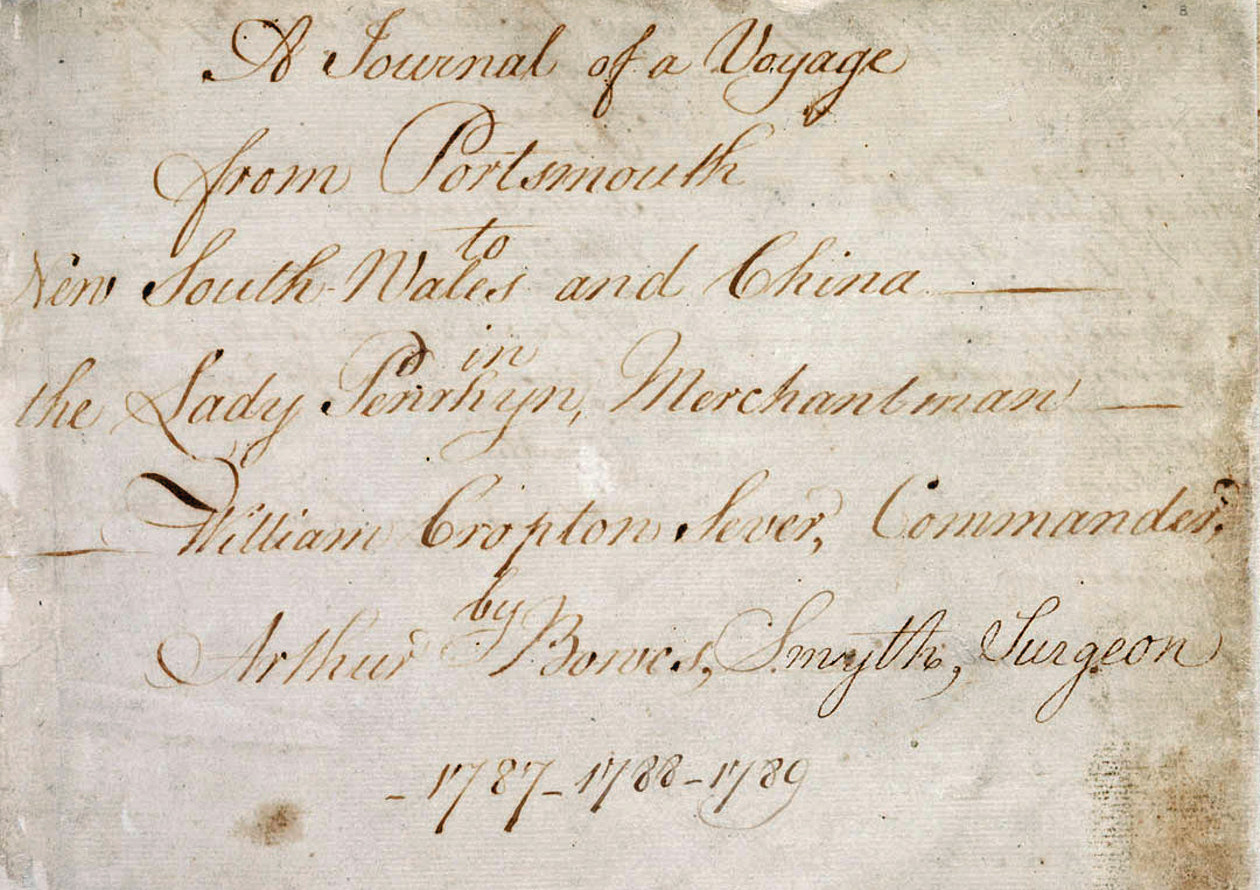 A Journal of a Voyage
from Portsmouth
to
New South Wales and China —
in
the Lady Penrhyn, Merchantman —
— William Cropton Sever, Commander,
by
Arthur Bowes, Smyth, Surgeon
- 1787 - 1788 - 1789